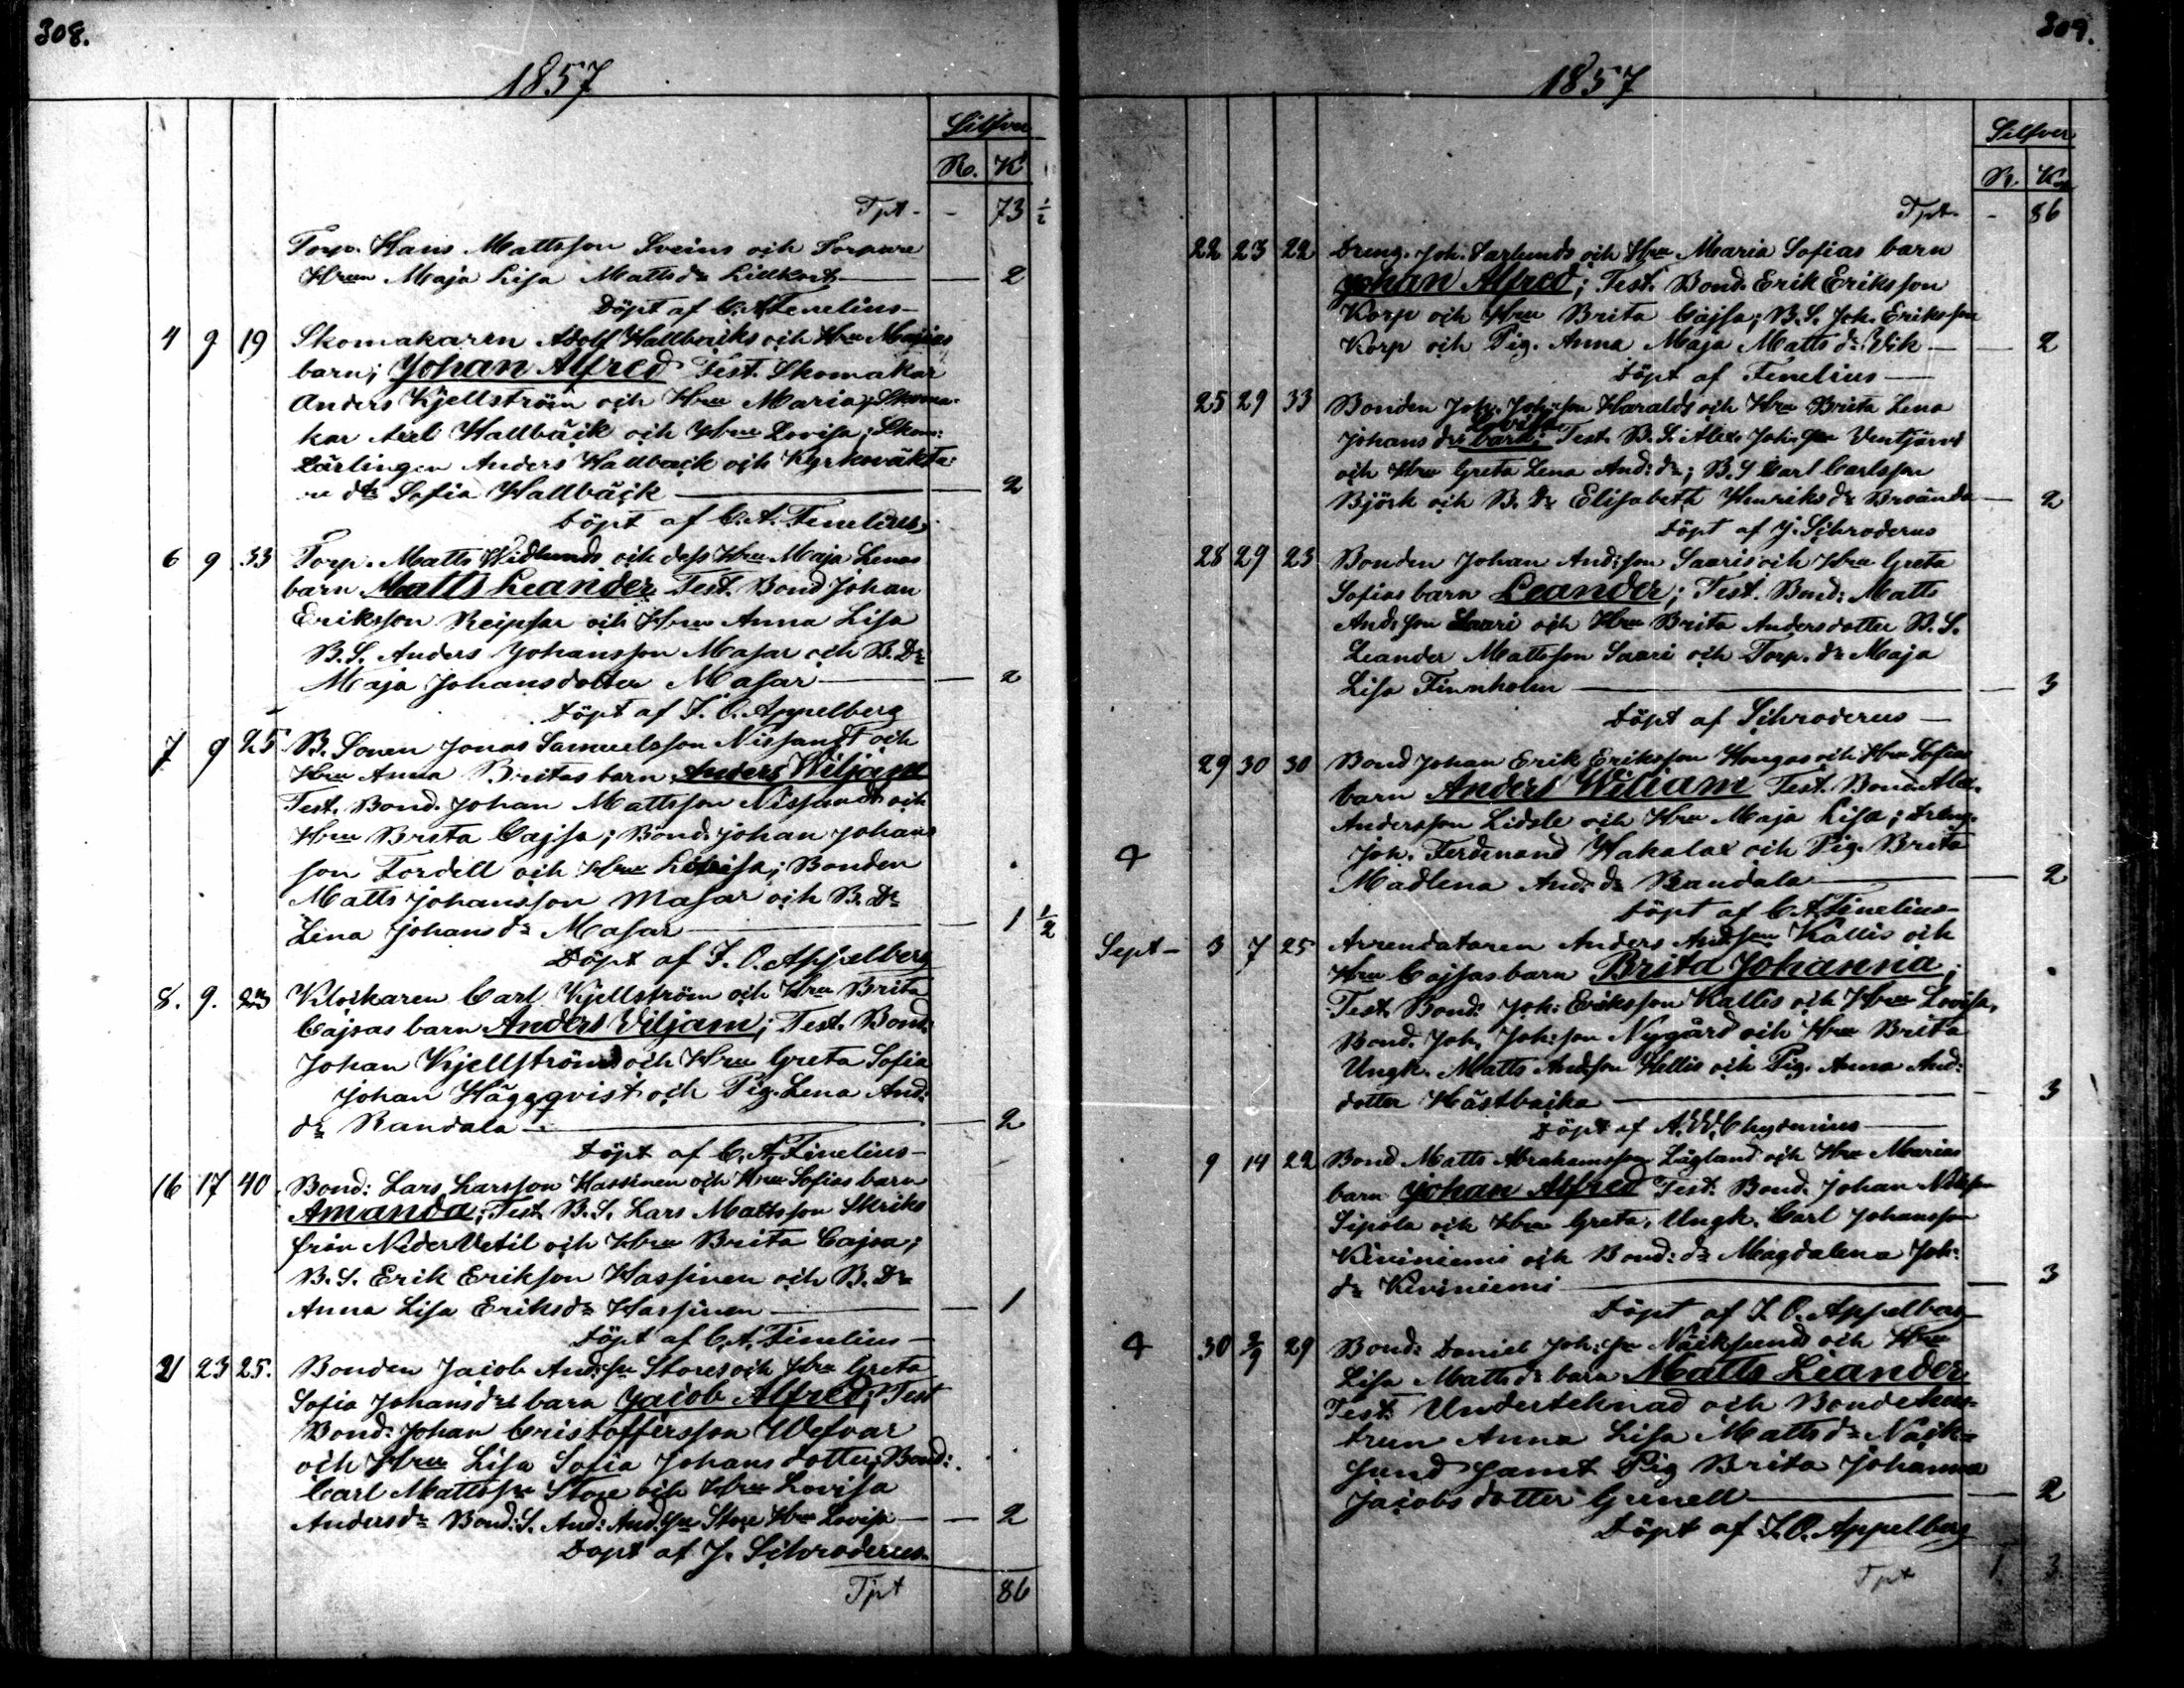 308.
1857
Silfver
Ro. K
Tpt - - 73 ½
Torp. Hans Mattsson Sveins och Torpare
Hrun Maja Lisa Mattsdr Lillkort — — 2
Döpt af C. A. Fenelius —
4 9 19 Skomakaren Adolf Hallbäcks och Hru Majas
barn; Johan Alfred Test. Skomakar
Anders Kjellström och Hru Maria; Skoma-
kar Axel Hallbäck och Hru Lovisa; Skom:
Lärlingen Anders Hallbäck och Kyrkoväkta-
re dtr Sofia Hallbäck — — 2
Döpt af C. A. Fenelius,
6 9 33 Torp. Matts Widlunds och dess Hru Maja Lenas
barn Matts Leander Test. Bond Johan
Eriksson Reipsar och Hru Anna Lisa
B. S. Anders Johansson Masar och B. Dr
Maja Johansdotter Masar — — 2
Döpt af F. O. Appelberg
7 9 25 B. Sonen Jonas Samuelsson Nissandt och
Hru Anna Britas barn Anders Wiljam
Test. Bond. Johan Mattsson Nissandt och
Hru Brita Cajsa; Bond. Johan Johans
son Fordell och Hru Lovisa; Bonden
Matts Johansson Masar och B. Dr
Lena Johansdr Masar — — 1 ½
Döpt af F. O. Appelberg
8. 9. Klockaren Carl Kjellström och Hru Brita
Cajsas barn Anders Viljam; Test. Bond:
Johan Kjellström och Hru Greta Sofia
Johan Häggqvist och Pig. Lena And:
dr Randala — — 2
Döpt af C. A. Fenelius —
16 17 40 Bond: Lars Larsson Hassinen och Hru Sofias barn
Amanda; Test. B. S. Lars Mattsson Skriks
från NederVetil och Hru Brita Cajsa;
B. S. Erik Erikson Hassinen och B. Dr
Anna Lisa Eriksdr Hassinen — — 1
Döpt af C. A. Fenelius —
21 23 25. Bonden Jacob And:sn Stores och Hru Greta
Sofia Johansdrs barn Jacob Alfred; Test
Bond: Johan Cristoffersson Wefvar
och Hru Lisa Sofia Johansdotter; Bond:
Carl Mattssn Store och Hru Lovisa
Andersdr Bond: S. And: And:sn Store Hru Lovisa — — 2
Döpt af J. Schroderus.
Tpt 86
309.
1857
Silfver
R. Kop
Tpt. - 86
22 23 22 Dreng. Joh. Sarlunds och Hru Maria Sofias barn
Johan Alfred; Test. Bond. Erik Eriksson
Korp och Hru Brita Cajsa; B. S. Joh. Eriksson
Korp och Pig. Anna Maja Mattsdr Vik — — 2
Döpt af Fenelius —
25 29 33 Bonden Joh. Joh:son Haralds och Hru Brita Lena
Lovisa
Johansdrs barn; Test. B. S. Alex. Joh:son Ventjärvi
och Hru Greta Lena And:dr; B. S Carl Carlsson
Björk och B. Dr Elisabeth Henriksdr Broända — 2
Döpt af J. Schroderus
28 29 23 Bonden Johan And:son Saaris och Hru Greta
Sofias barn Leander; Test. Bond: Matts
And:son Saari och Hru Brita Andersdotter B. S.
Leander Mattsson Saari och Torp. dr Maja
Lisa Finnholm — — 3
Döpt af Schroderus —
29 30 30 Bond Johan Erik Eriksson Hongas och Hru Sofias
barn Anders Wiliam Test. Bond. Alex.
Andersson Lidsle och Hru Maja Lisa; Dreng.
4 Joh. Ferdinand Hakalax och Pig. Brita
Madlena And:dr Randala — — 2
Döpt af C. A. Fenelius —
Sept — 3 7 25 Arrendatoren Anders And:son Kallis och
Hru Cajsas barn Brita Johanna;
Test. Bond: Joh: Eriksson Kallis och Hru Lovisa,
Bond. Joh. Joh:son Nygård och Hru Brita
Ungk. Matts And:son Hellis och Pig. Anna And:
dotter Hästbacka — — 3
Döpt af A. W. Chydenius —
9 14 22 Bond Matts Abrahamsson Lågland och Hru Marias
barn Johan Alfred Test. Bond. Johan Nilsson
Sipola och Hru Greta, Ungk. Carl Johansson
Kiviniemi och Bond: dr Magdalena Joh:
dr Kiviniemi — — 3
Döpt af F. O. Appelberg
4 30 2/9 29 Bond: Daniel Joh:sn Näcksunds och Hru
Lisa Mattsdrs barn Matts Leander
Test. Underteknad och Bondehus-
trun Anna Lisa Mattsdr Näck-
sund samt Pig Brita Johanna
Jacobsdotter Grenell — — 2
Döpt af F. O. Appelberg
Tpt 1 3